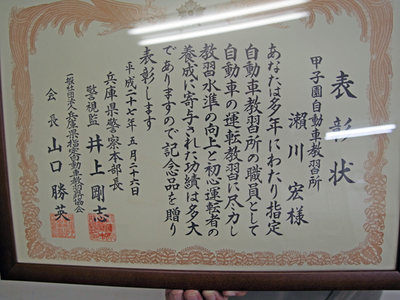 表彰状
甲子園自動車教習所
瀬川宏様
あなたは多年にわたり指定
自動車教習所の職員として
自動車の運転教習に尽力し
教習水準の向上と初心運転者の
養成に寄与された功績は多大
でありますので記念品を贈り
表彰します
平成二十七年五月二十六日
兵庫県警察本部長
警視監 井上剛志
一般社団法人兵庫県指定自動車教習所協会
会長 山口勝英